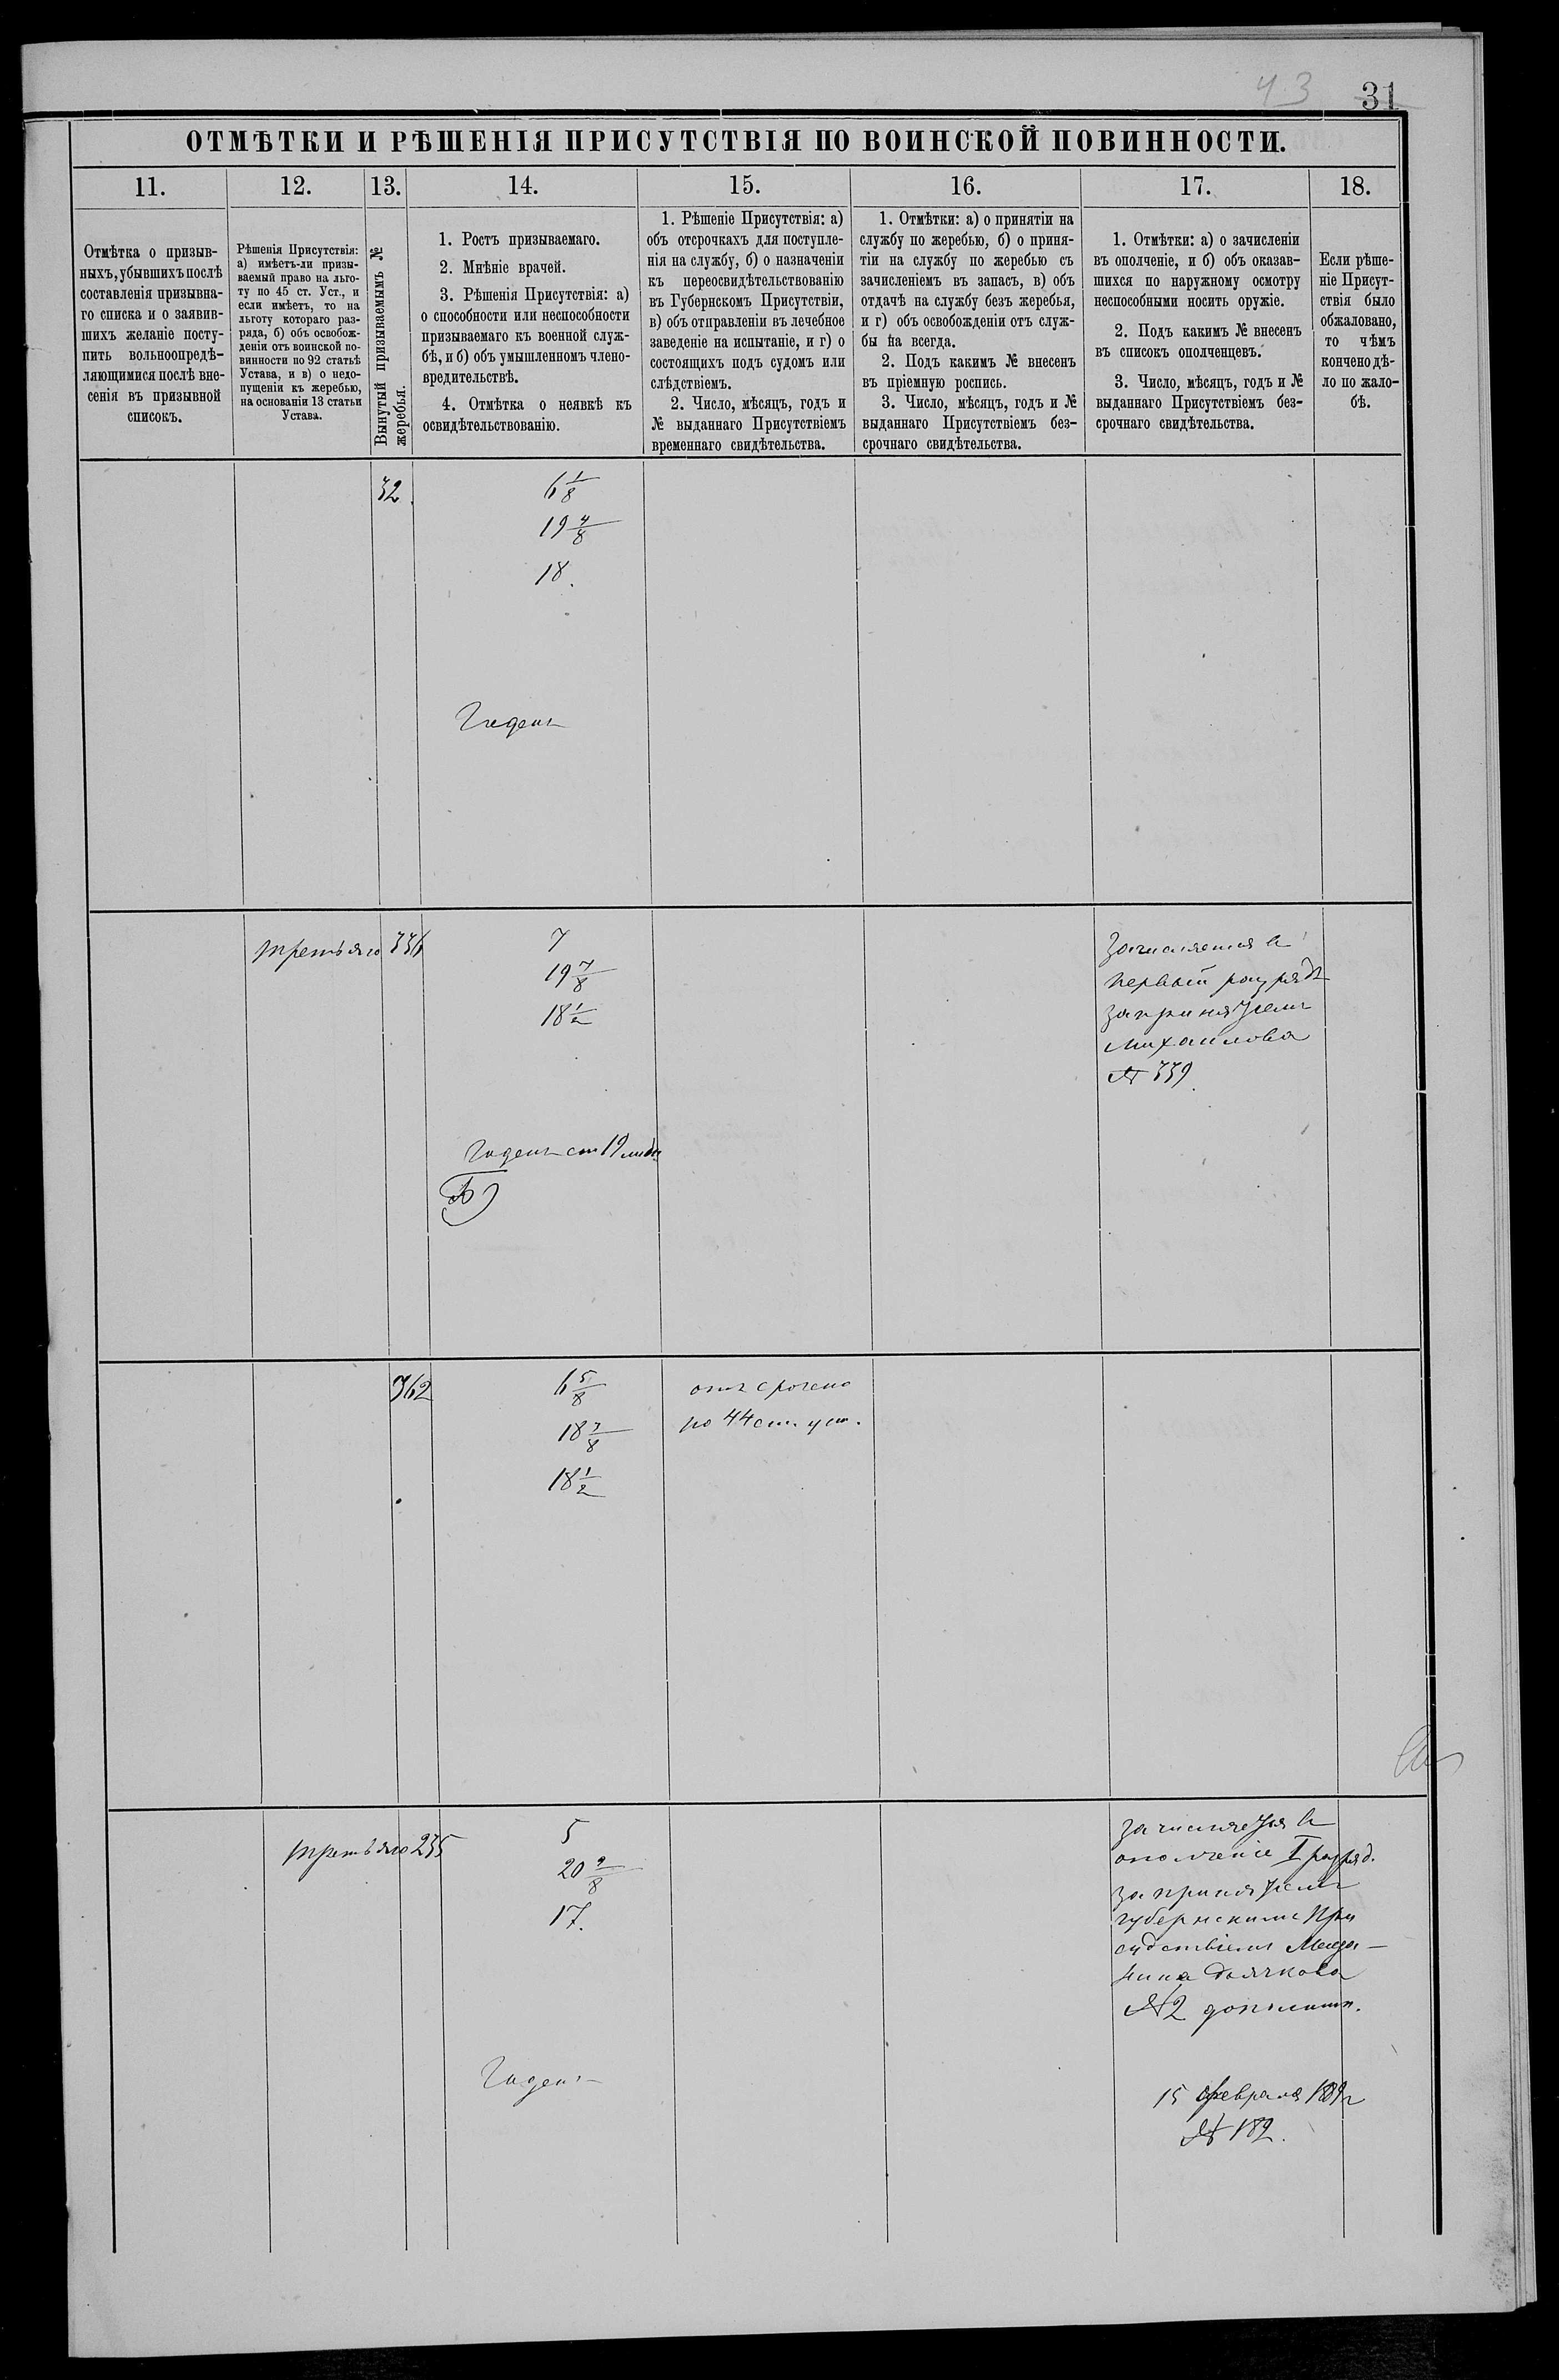 43
31
ОТМѢТКИ И РѢШЕНІЯ ПРИСУТСТВІЯ ПО ВОИНСКОЙ ПОВИННОСТИ.
11.
Отмѣтка о призыв-
ныхъ, убывшихъ послѣ
составленія призывна-
го списка и о заявив-
шихъ желаніе посту-
пить вольноопредѣ-
ляющимися послѣ вне-
сенія въ призывной
списокъ.
12.
Рѣшенія Присутствія:
а) имѣетъ-ли призы-
ваемый право на льго-
ту по 45 ст. Уст., и
если имѣетъ, то на
льготу котораго раз-
ряда, б) объ освобож-
деніи отъ воинской по-
винности по 92 статьѣ
Устава, и в) о недо-
пущеніи къ жеребью,
на основаніи 13 статьи
Устава.
13.
Вынутый призываемымъ №
жеребья.
14.
1. Ростъ призываемаго.
2. Мнѣніе врачей.
3. Рѣшенія Присутствія: а)
о способности или неспособности
призываемаго къ военной служ-
бѣ, и б) объ умышленномъ члено-
вредительствѣ.
4. Отмѣтка о неявкѣ къ
освидѣтельствованію.
15.
1. Рѣшеніе Присутствія: а)
объ отсрочкахъ для поступле-
нія на службу, б) о назначеніи
къ переосвидѣтельствованію
въ Губернскомъ Присутствіи,
в) объ отправленіи въ лечебное
заведеніе на испытаніе, и г) о
состоящихъ подъ судомъ или
слѣдствіемъ.
2. Число, мѣсяцъ, годъ и
№ выданнаго Присутствіемъ
временнаго свидѣтельства.
16.
1. Отмѣтки: а) о принятіи на
службу по жеребью, б) о приня-
тіи на службу по жеребью съ
зачисленіемъ въ запасъ, в) объ
отдачѣ на службу безъ жеребья,
и г) объ освобожденіи отъ служ-
бы на всегда.
2. Подъ какимъ № внесенъ
въ пріемную роспись.
3. Число, мѣсяцъ, годъ и №
выданнаго Присутствіемъ без-
срочнаго свидѣтельства.
17.
1. Отмѣтки: а) о зачисленіи
въ ополченіе, и б) объ оказав-
шихся по наружному осмотру
неспособными носить оружіе.
2. Подъ какимъ № внесенъ
въ списокъ ополченцевъ.
3. Число, мѣсяцъ, годъ и №
выданнаго Присутствіемъ без-
срочнаго свидѣтельства.
18.
Если рѣше-
ніе Присут-
ствія было
обжаловано,
то чѣмъ
кончено дѣ-
ло по жало-
бѣ.
32
6 1/8
19 4/8
18.
Годенъ
третьяго 336
7
19 7/8
18 1/2
Годенъ ст 19 лит
Б)
Зачисляется въ
первый разрядъ
за принятіемъ
Михайлова
№ 339.
362
6 5/8
18 7/8
18 1/2
отсрочено
по 44 ст. уст.
третьяго 235
5
20 2/8
17.
Годенъ
зачисляется въ
ополченіе I разряд.
за принятіемъ
губернскимъ При
судствіемъ Меща-
нина Дьячкова
№ 2 дополнит.
15 Февраля
№ 182.